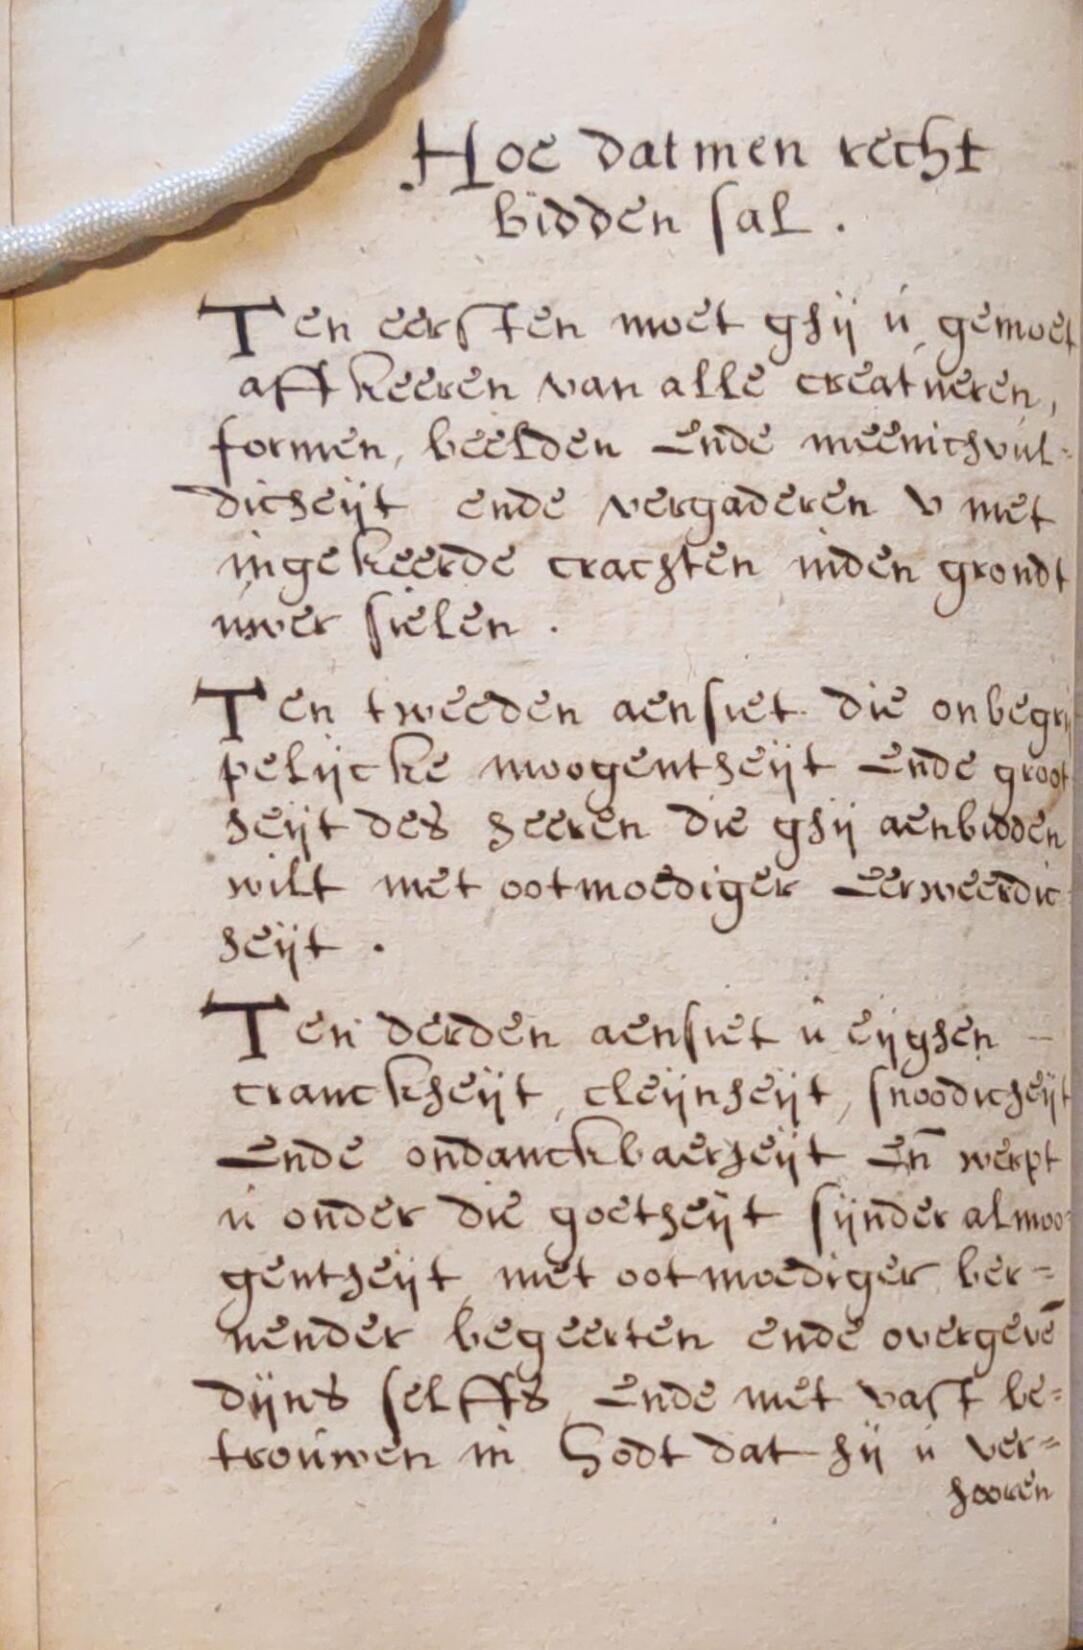 Hoe datmen recht
bidden sal.
Ten eersten moet ghij ú gemoet
aff keeren van alle creatueren,
formen, beelden Ende meenichvul-
dicheijt ende vergaderen v met
ingekeerde crachten inden grondt
uwer sielen.
Ten tweeden aensiet die onbegrij
pelijcke moogentheijt Ende groot
heijt des heeren die ghij aenbidden
wilt met ootmoediger Eerweerdic
heijt.
Ten derden aensiet ú eijghen
cranckheijt, cleijnheijt, snoodicheijt
Ende ondanckbaerheijt En̄ werpt
ú onder die goetheijt sijnder almoo-
gentheijt met ootmoediger ber=
nender begeerten ende overgevē
dijns selffs, Ende met vast be=
trouwen in Godt dat hij ú ver=
hooren